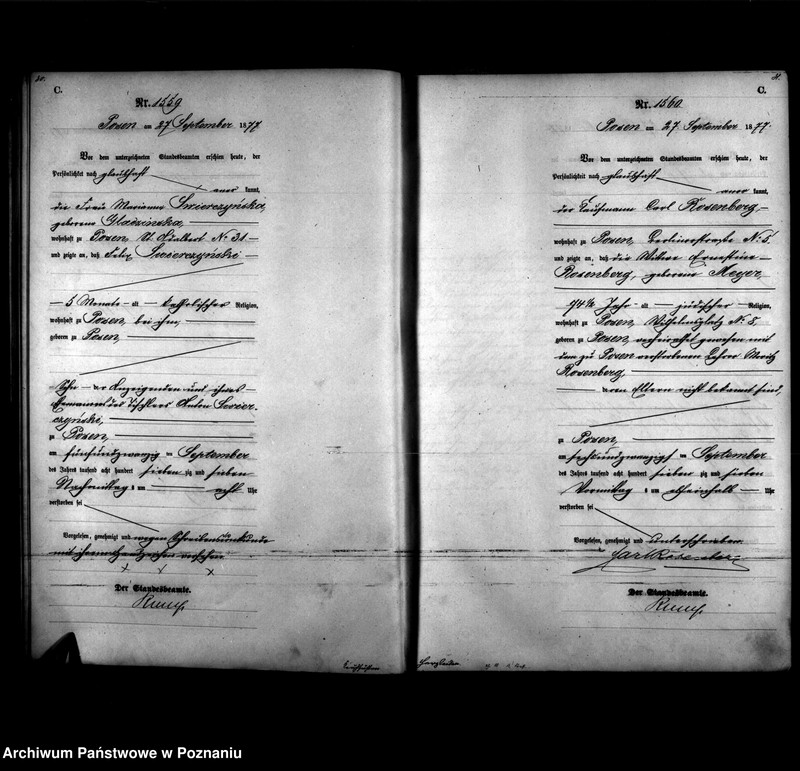 30.
C.
Nr. 1559
Posen am 27 September 1877
Vor dem unterzeichneten Standesbeamten erschien heute, der
Persönlichkeit nach glaubhaft
aner kannt,
die Frau Marianna Swierczyńska,
geborene
wohnhaft zu Posen, St. Adalbert No 31
und zeigte an, daß Felix Swierczyński
5 Monate alt katholischer Religion,
wohnhaft zu Posen, bei ihm,
geboren zu Posen,
Sohn der Anzeigenden und ihres
Ehemannes des Tischlers Anton Swier-
czyński,
zu Posen,
am fünfundzwanzig ten September
des Jahres tausend acht hundert sieben zig und sieben
Nachmittag s um acht Uhr
verstorben sei
Vorgelesen, genehmigt und wegen Schreibensunkunde
mit ihrem Zeichen versehen
x x x
Der Standesbeamte.
C.
Nr. 1560
Posen am 27. September 1877.
Vor dem unterzeichneten Standesbeamten erschien heute, der
Persönlichkeit nach glaubhaft
aner kannt,
der Kaufmann Carl Rosenberg,
wohnhaft zu Posen, Berlinerstraße No 5
und zeigte an, daß die Wittwe Ernestine
Rosenberg, geborene Meyer,
74 1/2 Jahr alt jüdischer Religion,
wohnhaft zu Posen, Wilhelmsplatz No 5,
geboren zu Posen, verheirathet gewesen mit
dem zu Posen verstorbenen Lehrer Moritz
Rosenberg
deren Eltern nicht bekannt sind,
zu Posen,
am sechsundzwanzigst en September
des Jahres tausend acht hundert sieben zig und sieben
Vormittag s um Uhr
verstorben sei
Vorgelesen, genehmigt und unterschrieben
Carl Rosenberg
Der Standesbeamte.
Archiwum Państwowe w Poznaniu